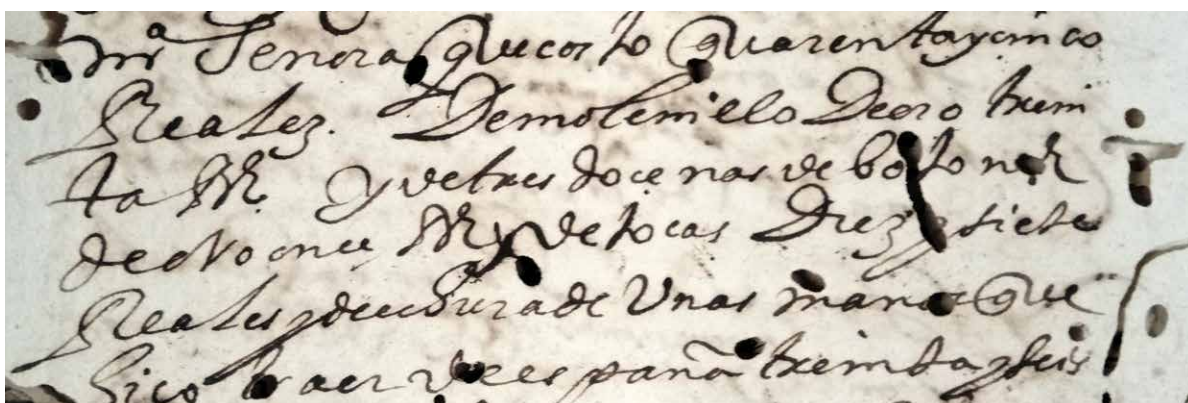 nrª Señora que costo quarenta y cinco
Reales. De molenillo De oro trein
ta Rs. y de tres docenas de botones
de oro once Rs y de tocas Diez y siete
Reales y de hechura de Unas manos que
hico traer de españa treinta y seis